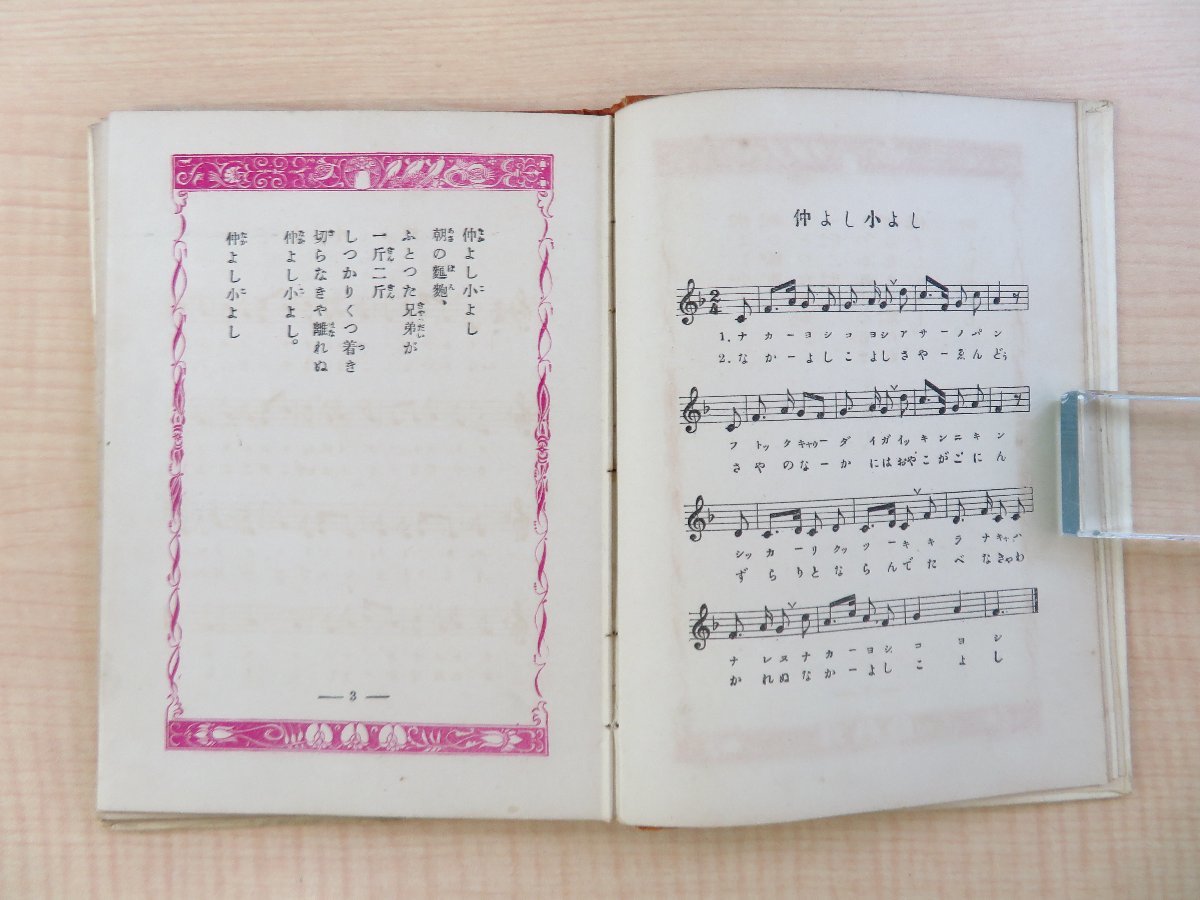 仲よし小よし
朝の麵麭、
ふとつた兄弟が
一斤二斤
しつかりくつ着き
切らなきや離れぬ
仲よし小よし。
仲よし小よし
— 3 —
仲よし小よし
1. ナカーヨシコヨシアサーノパン
2. なかーよしこよしさやーゑんどう
フトックキャウーダイガイッキンニキン
さやのなーかにはおやこがごにん
シッカーリクッツーキキラナキャハ
ずらりとならんでたべなきゃわ
ナレヌナカーヨシコヨシ
かれぬなかーよしこよし